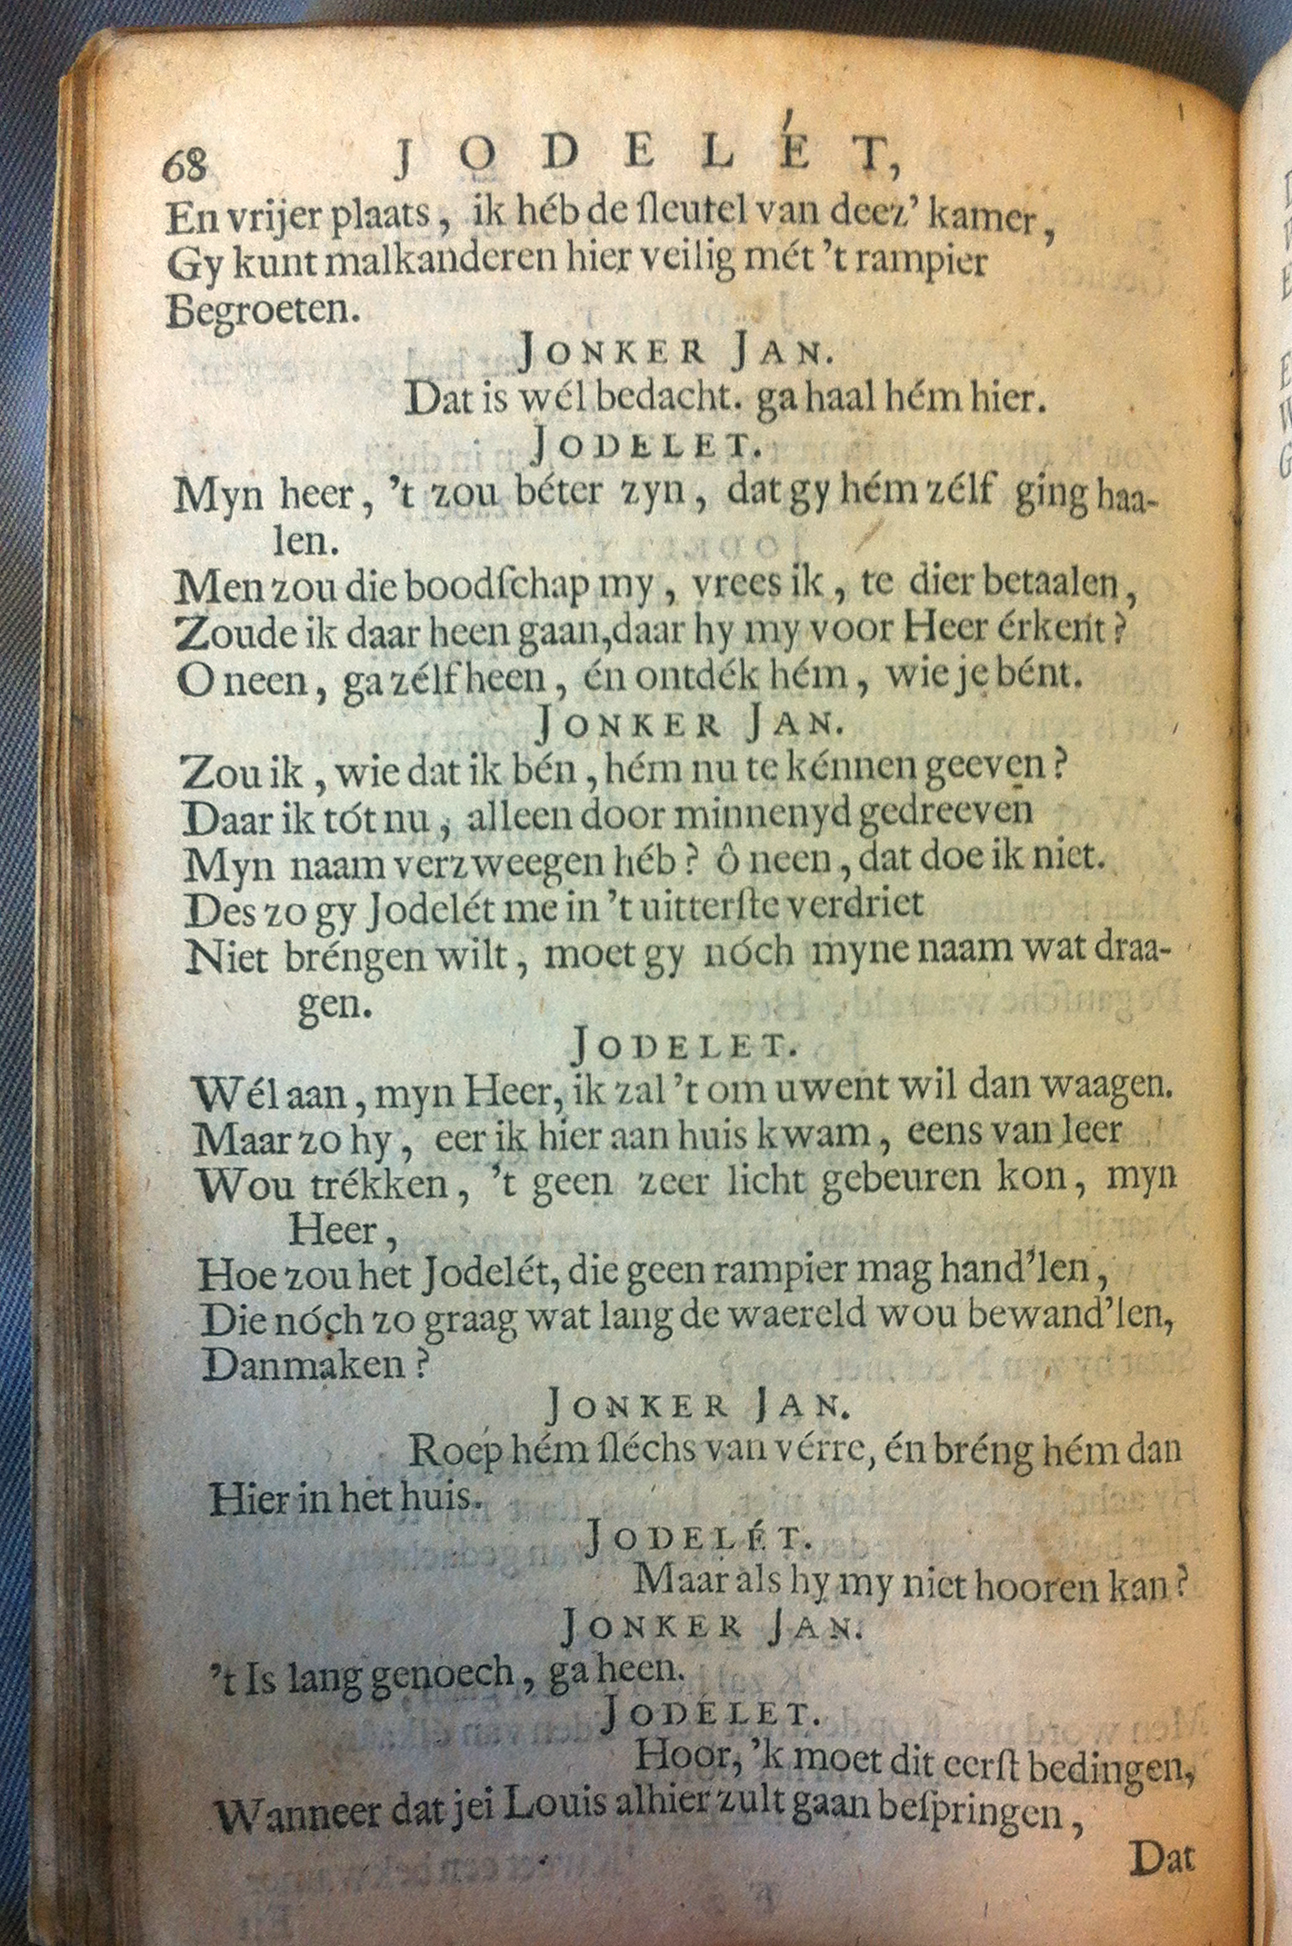 68 JODELÉT,
En vrijer plaats, ik héb de ſleutel van deez' kamer,
Gy kunt malkanderen hier veilig mét 't rampier
Begroeten.
JONKER JAN.
Dat is wél bedacht. ga haal hém hier.
JODELET.
Myn heer, 't zou béter zyn, dat gy hém zélf ging haa-
len.
Men zou die boodſchap my, vrees ik, te dier betaalen,
Zoude ik daar heen gaan, daar hy my voor Heer érkent?
O neen, ga zélf heen, én ontdék hém, wie je bént.
JONKER JAN.
Zou ik, wie dat ik bén, hém nu te kénnen geeven?
Daar ik tót nu, alleen door minnenyd gedreeven
Myn naam verzweegen héb? ô neen, dat doe ik niet.
Des zo gy Jodelét me in 't uitterſte verdriet
Niet bréngen wilt, moet gy nóch myne naam wat draa-
gen.
JODELET.
Wél aan, myn Heer, ik zal 't om uwent wil dan waagen.
Maar zo hy, eer ik hier aan huis kwam, eens van leer
Wou trékken, 't geen zeer licht gebeuren kon, myn
Heer,
Hoe zou het Jodelét, die geen rampier mag hand'len,
Die nóch zo graag wat lang de waereld wou bewand'len,
Dan maken?
JONKER JAN.
Roep hém ſléchs van vérre, én bréng hém dan
Hier in het huis.
JODELÉT.
Maar als hy my niet hooren kan?
JONKER JAN.
't Is lang genoech, ga heen.
JODELET.
Hoor, 'k moet dit eerſt bedingen,
Wanneer dat jei Louis alhier zult gaan beſpringen,
Dat